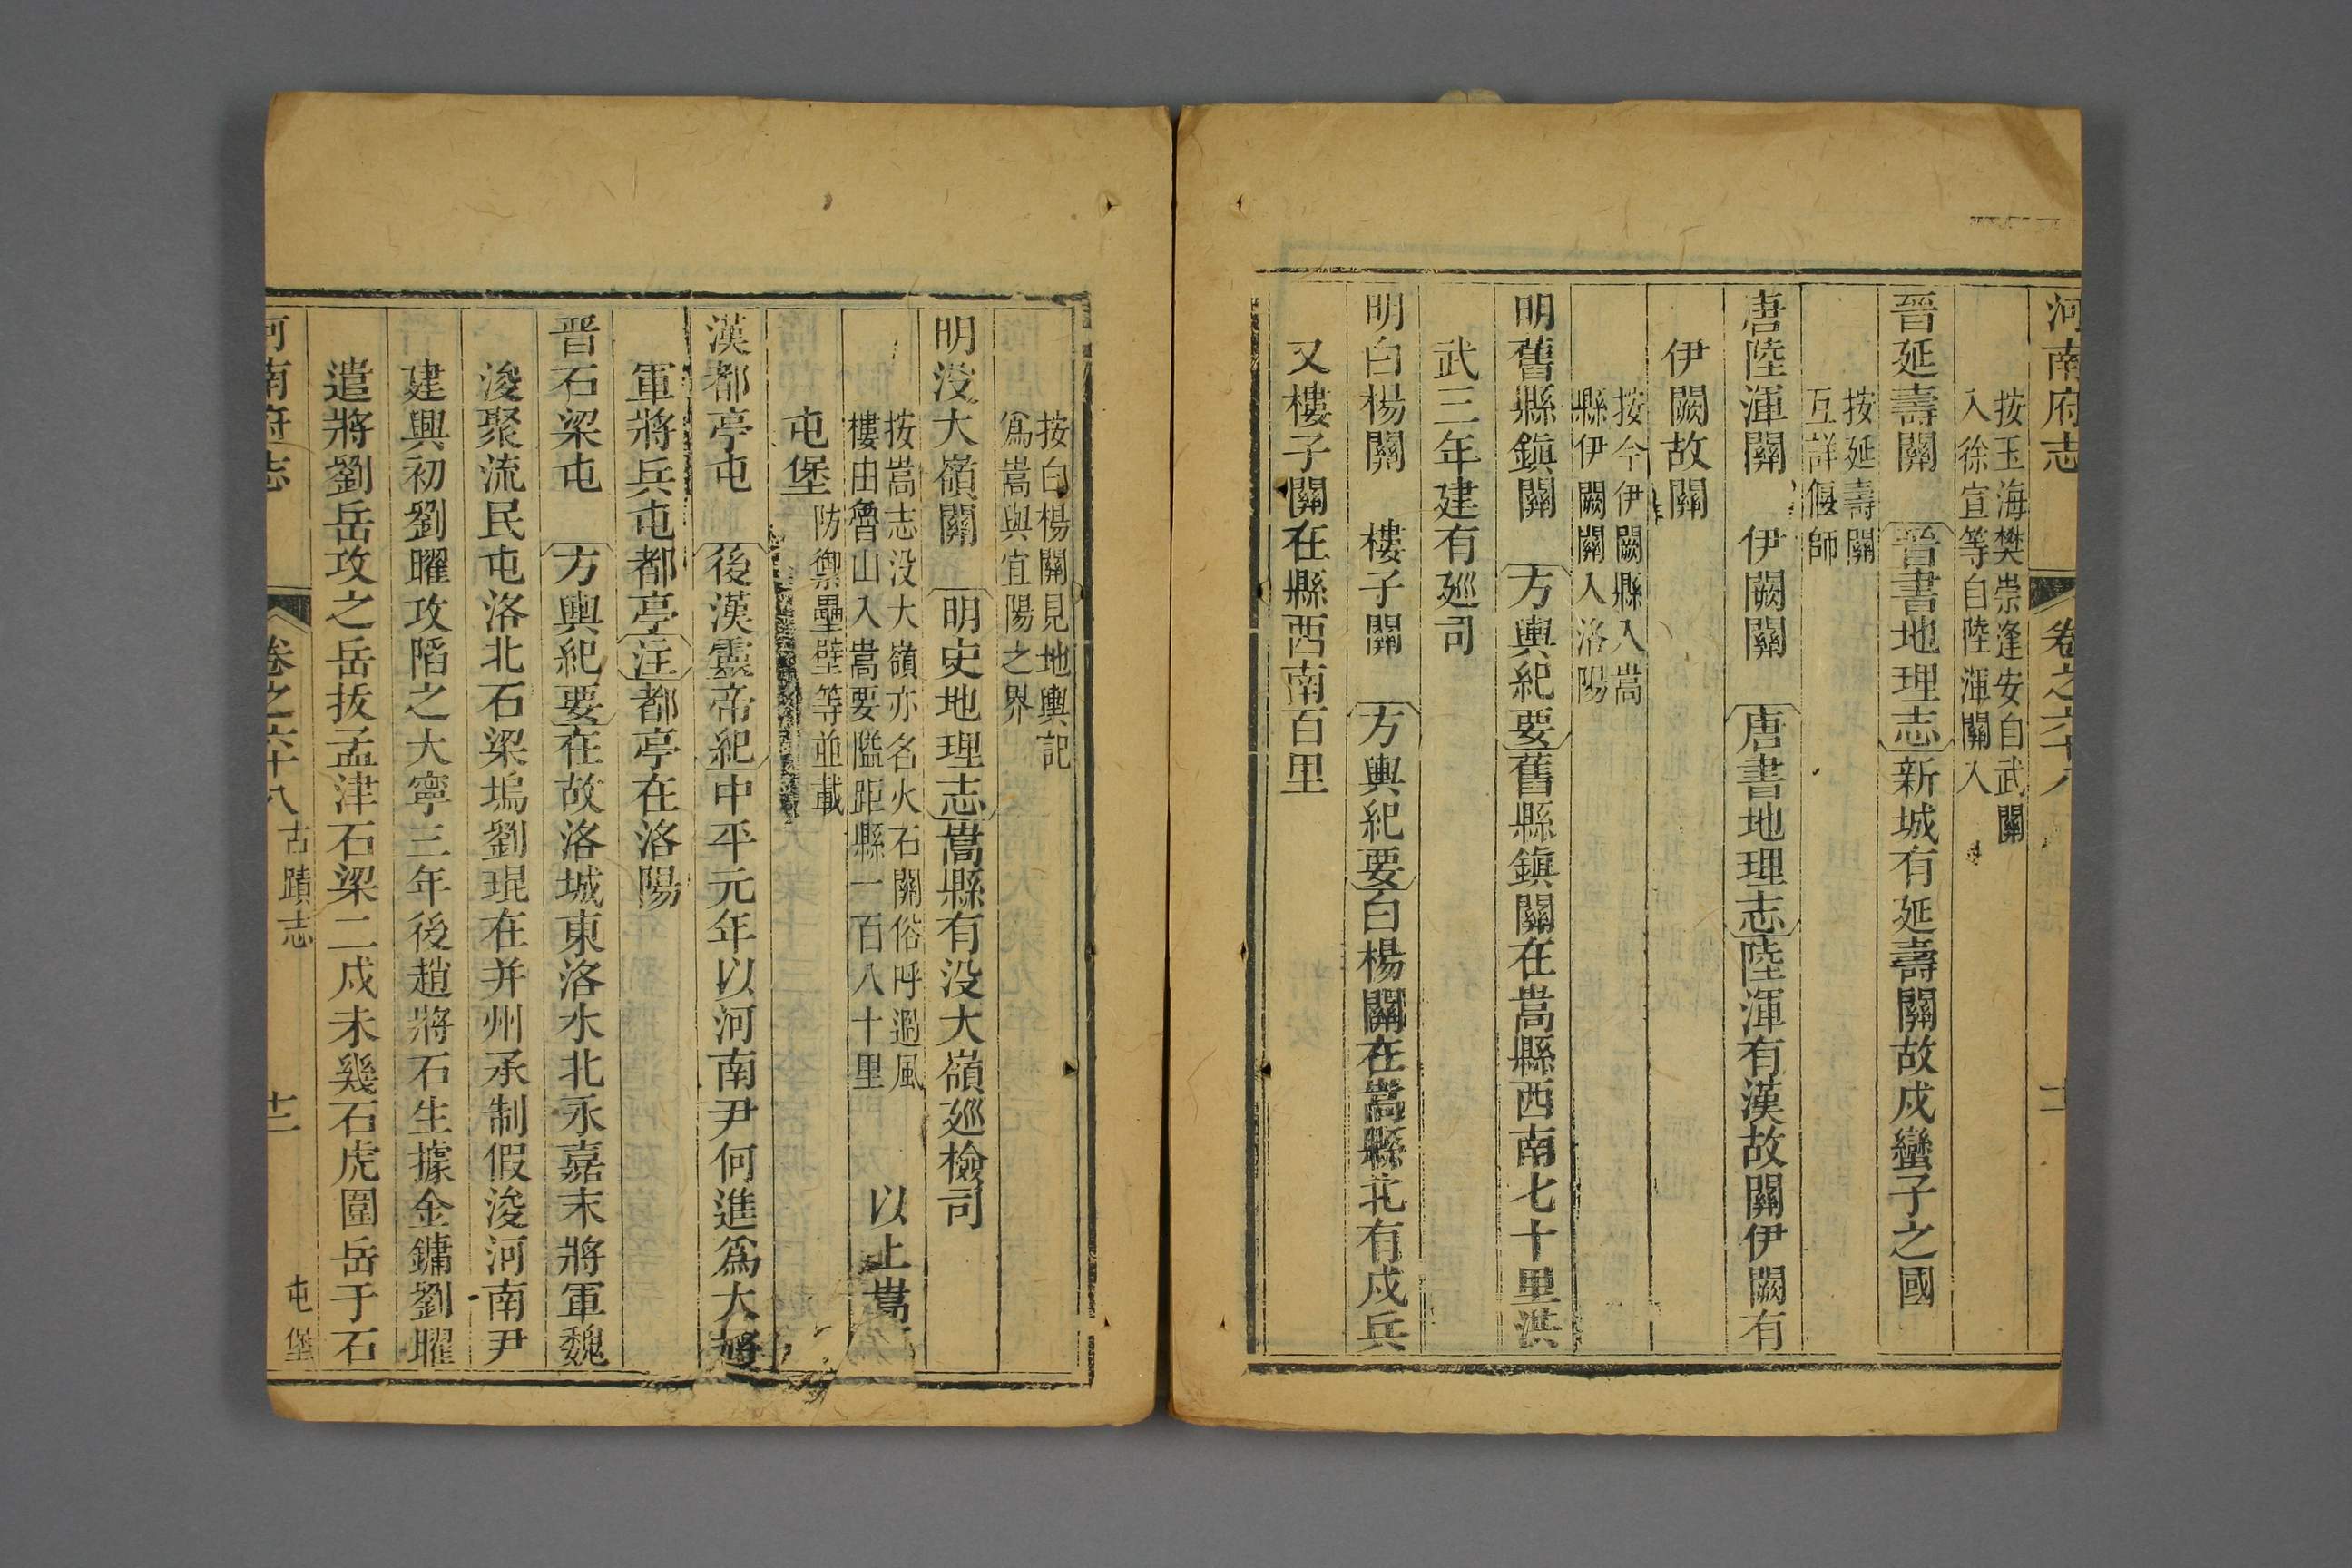 河南府志
卷之六十八
按玉海樊崇逢安自武關
入徐宣等自陸渾關入
晉延壽關 晉書地理志新城有延壽關故戍蠻子之國
按延壽關
互詳偃師
唐陸渾關 伊闕關 唐書地理志陸渾有漢故關伊闕有
伊闕故關
按今伊闕縣入嵩
縣伊闕關入洛陽
明舊縣鎭關 方輿紀要舊縣鎭關在嵩縣西南七十里洪
武三年建有廵司
明白楊關 樓子關 方輿紀要白楊關在嵩縣北有戍兵
又樓子關在縣西南百里
按白楊關見地輿記
爲嵩與宜陽之界
明没大嶺關 明史地理志嵩縣有没大嶺廵檢司
按嵩志没大嶺亦名火石關俗呼過風
樓由魯山入嵩要隘距縣一百八十里
以上嵩
屯堡
防禦壘壁等並載
漢都亭屯 後漢靈帝紀中平元年以河南尹何進爲大將
軍將兵屯都亭注都亭在洛陽
晋石梁屯 方輿紀要在故洛城東洛水北永嘉末將軍魏
浚聚流民屯洛北石梁塢劉琨在并州承制假浚河南尹
建興初劉曜攻䧟之大寧三年後趙將石生據金鏞劉曜
遣將劉岳攻之岳拔孟津石梁二戍未幾石虎圍岳于石
河南府志
卷之六十八
古蹟志
十二
屯堡